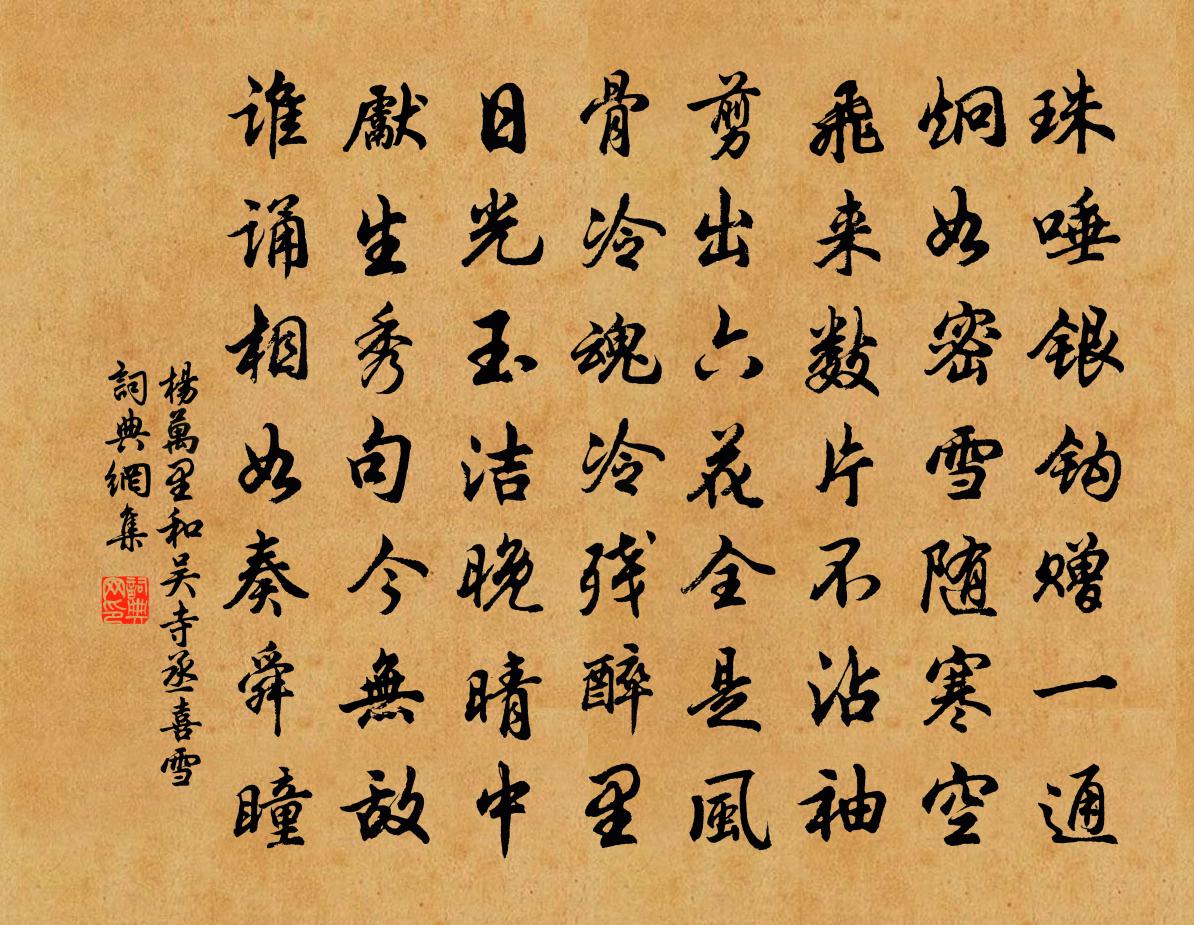 珠唾银钩赠一通
炯如密雪随寒空
飛来数片不沾袖
剪出六花全是風
骨冷魂冷残醉里
日光玉洁晚晴中
獻生秀句今無敌
谁诵相如奏舜瞳
楊萬里和吴寺丞喜雪
詞典網集
詞典网印